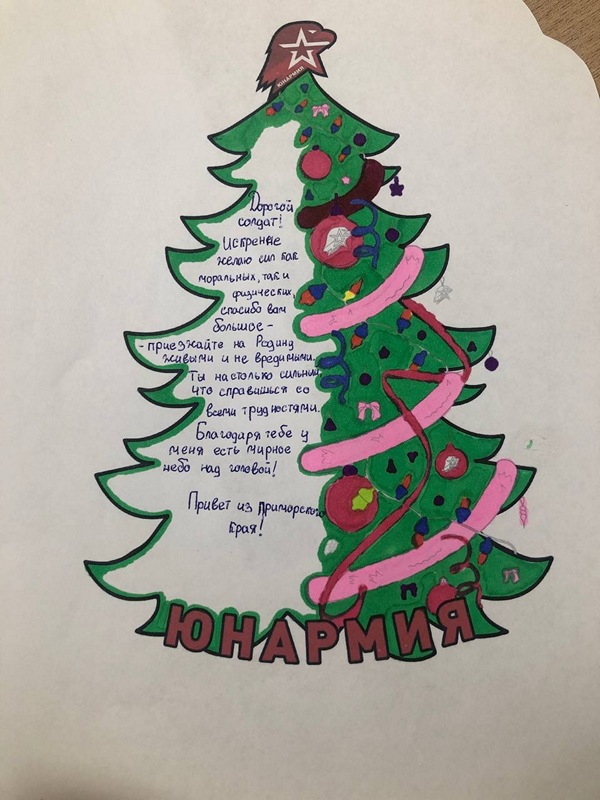 ЮНАРМИЯ
Дорогой
солдат!
Искренне
желаю сил как
моральных, так и
физических,
спасибо вам
большое -
- приезжайте на Родину
живыми и не вредимыми.
Ты настолько сильный,
что справишься со
всеми трудностями.
Благодаря тебе у
меня есть мирное
небо над головой!
Привет из Приморского
края!
ЮНАРМИЯ